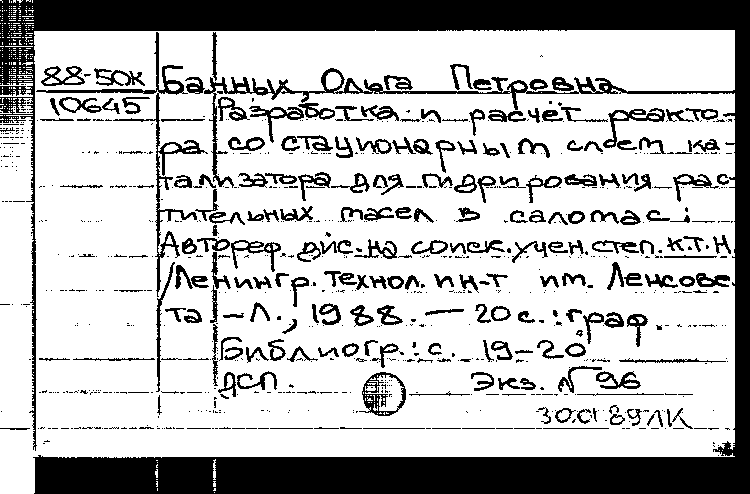 88-50к
10645
Банных, Ольга Петровна
Разработка и расчёт реакто-
ра со стационарным слоем ка-
тализатора для гидрирования рас-
тительных масел в саломас:
Автореф. дис. на соиск. учен. степ. к.т.н.
/Ленингр. технол. ин-т им. Ленсове-
та. – Л., 1988. — 20 с. : граф.
Библиогр.: с. 19-20
ДСП. Экз. N 96
30.01.89 ЛК